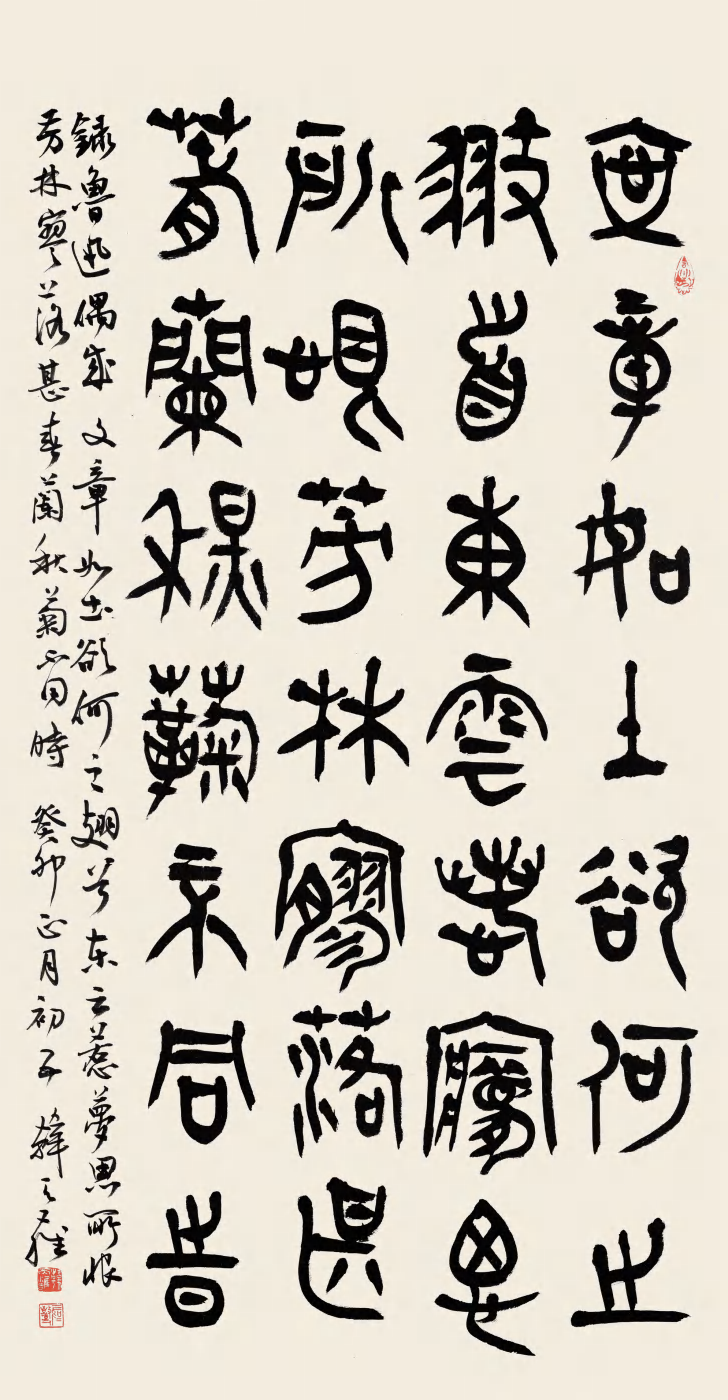 文章如土欲何之
翹首東雲惹夢思
所恨芳林寥落甚
春蘭秋菊不同時
録魯迅偶成 文章如土欲何之翹首东云惹夢思所恨
芳林寥落甚春蘭秋菊不同時 癸卯正月初五 韓天雍